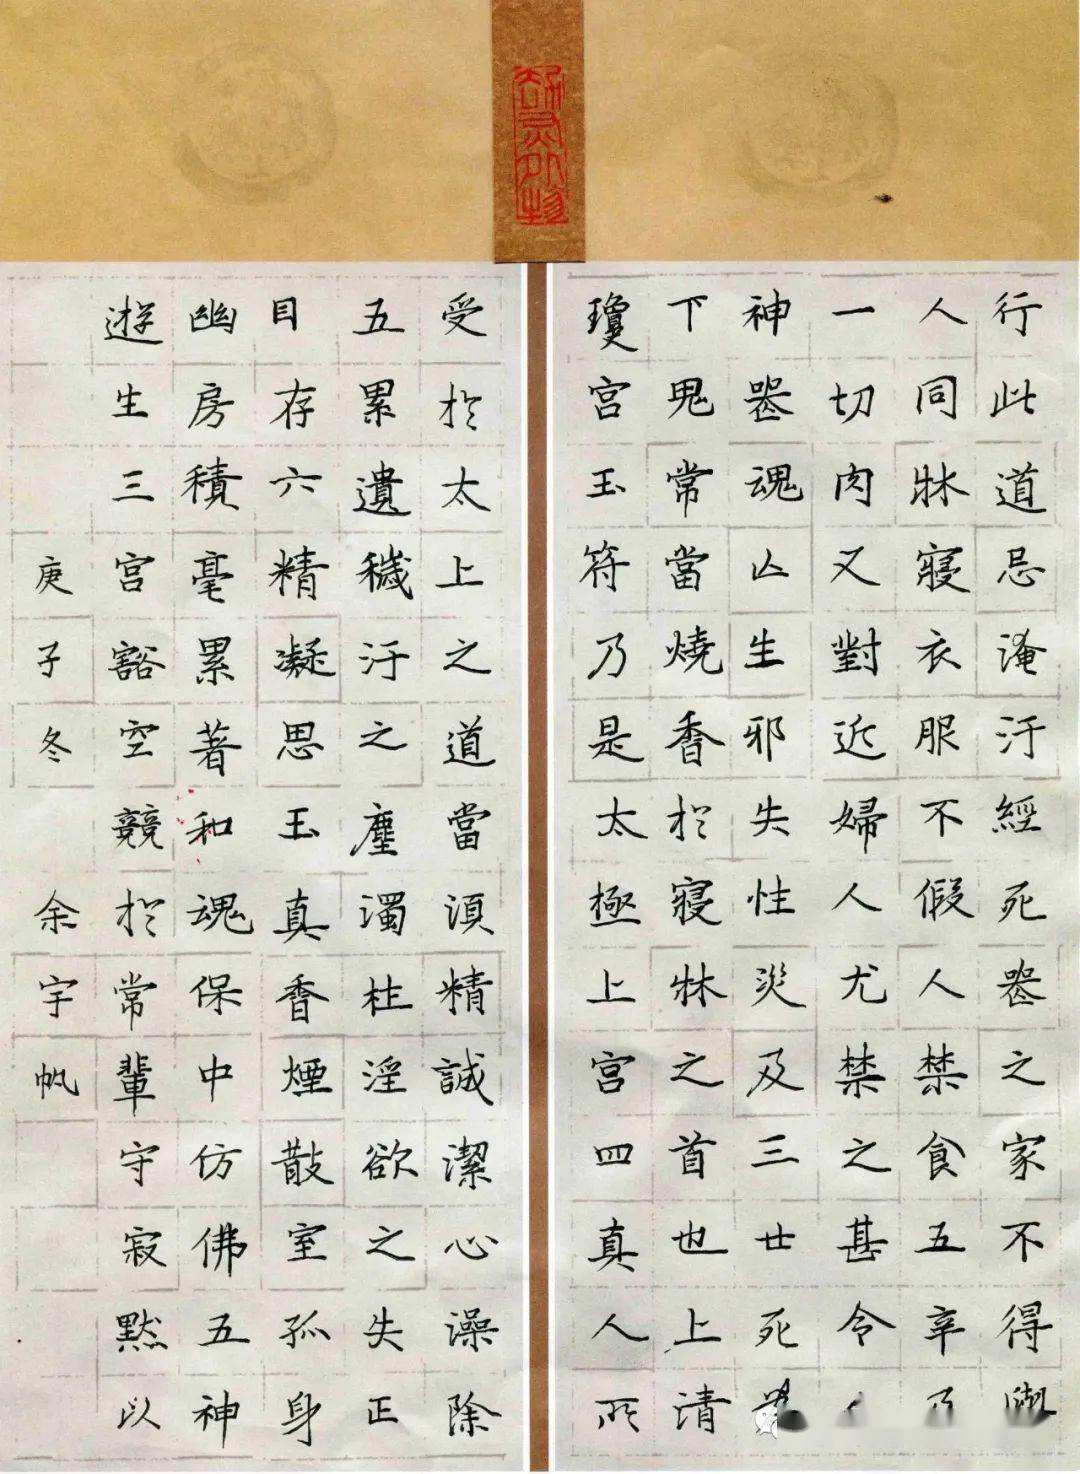 行此道忌淹汙經死喪之家不得與
人同牀寢衣服不假人禁食五辛及
一切肉又對近婦人尤禁之甚令人
神喪魂亡生邪失性災及三世死為
下鬼常當燒香於寢牀之首也上清
瓊宮玉符乃是太極上宮四真人所
受於太上之道當須精誠潔心澡除
五累遺穢汙之塵濁杜淫欲之失正
目存六精凝思玉真香煙散室孤身
幽房積毫累著和魂保中仿佛五神
遊生三宮豁空競於常輩守寂默以
庚子冬 余宇帆